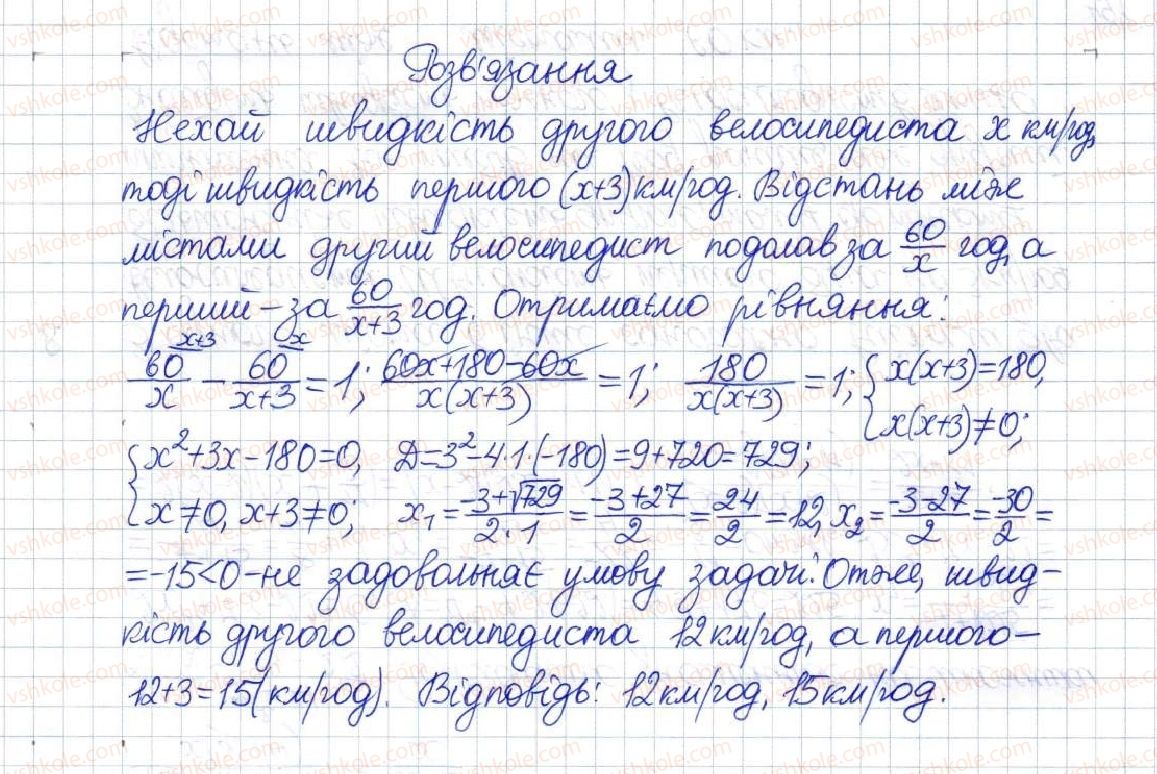 Розв'язання
Нехай швидкість другого велосипедиста x км/год,
тоді швидкість першого (x+3) км/год. Відстань між
містами другий велосипедист подолав за 60/x год, а
перший – за 60/(x+3) год. Отримаємо рівняння:
60/x (x+3) – 60/(x+3) (x) = 1; (60x+180–60x)/(x(x+3)) = 1; 180/(x(x+3)) = 1; { x(x+3)=180, x(x+3)≠0;
{ x²+3x–180=0, D=3²–4·1·(–180)=9+720=729;
x≠0, x+3≠0; x₁ = (–3+√729)/(2·1) = (–3+27)/2 = 24/2 = 12, x₂ = (–3–27)/2 = –30/2 =
= –15<0 – не задовольняє умову задачі. Отже, швид-
кість другого велосипедиста 12 км/год, а першого –
12+3=15 (км/год). Відповідь: 12 км/год, 15 км/год.